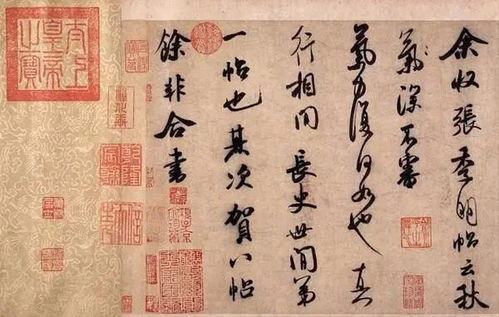 余收張季明帖云秋
氣深不審
氣力復何如也真
行相間長史世間第
一帖也其次賀八帖
餘非合書
太上
皇帝
之寶